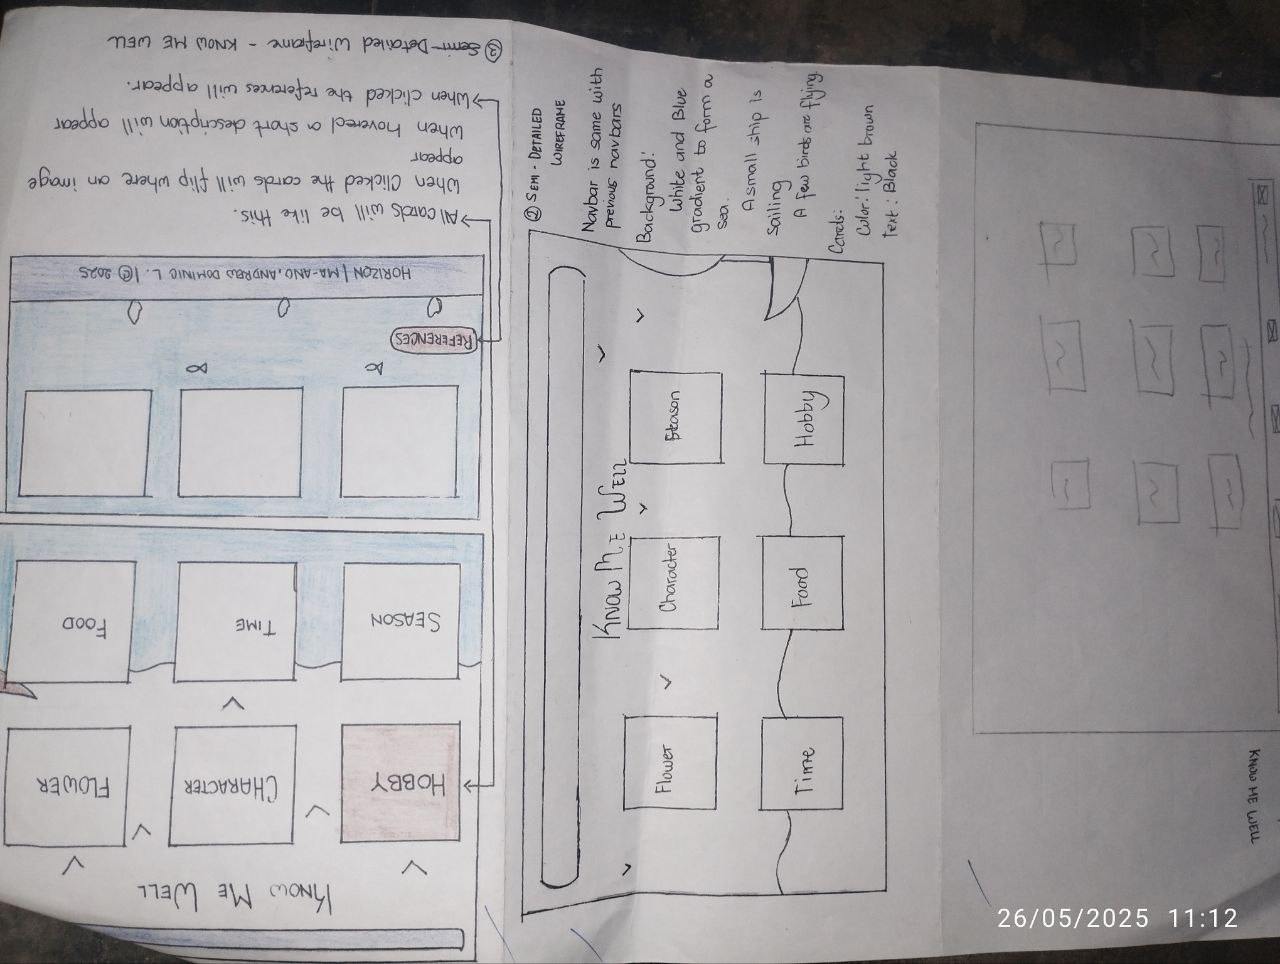 KNOW ME WELL
26/05/2025 11:12
② SEMI-DETAILED
WIREFRAME
Navbar is same with
previous navbars
Background:
White and Blue
gradient to form a
sea.
A small ship is
sailing
A few birds are flying.
Cards:
Color: light brown
Text: Black
KNOW ME WELL
Flower
Character
Season
Time
Food
Hobby
KNOW ME WELL
HOBBY
CHARACTER
FLOWER
SEASON
TIME
FOOD
REFERENCES
HORIZON | MA-ANO, ANDREW DOMINIC L. | © 2025
All cards will be like this.
When clicked the cards will flip where an image
appear
When hovered a short description will appear
When clicked the references will appear.
③ Semi-Detailed Wireframe - KNOW ME WELL